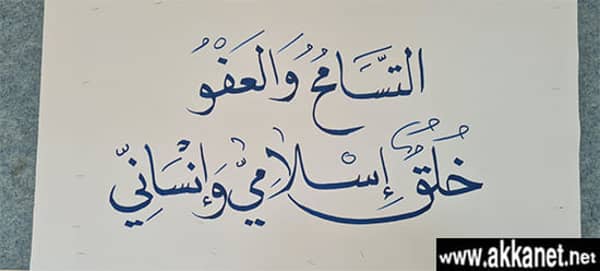 التَّسَامُحُ وَالعَفْوُ
خُلُقٌ إِسْلَامِيٌّ وَإِنْسَانِيٌّ
www.akkanet.net